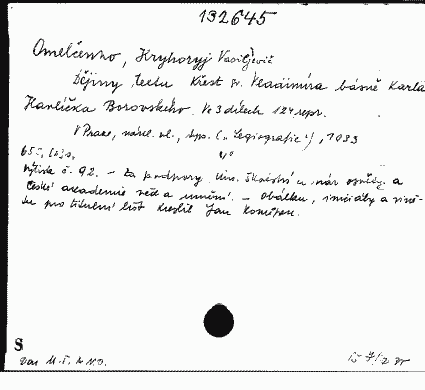 132645
Omelčenko, Kryhoryj Vasiljevič
Dějiny textu Křest sv. Vladimíra básně Karla
Havlíčka Borovského. Ve 3 dílech 124 repr.
V Praze, nákl. vl., typ. („Legiografie"), 1933
65 s.
Výtisk č. 92. – Za podpory Min. školství a nár. osvěty a
České akademie věd a umění. – Obálku, iniciály a
pro titulní list kreslil Jan Konůpek.
S
Dar M.Š. a N.O.